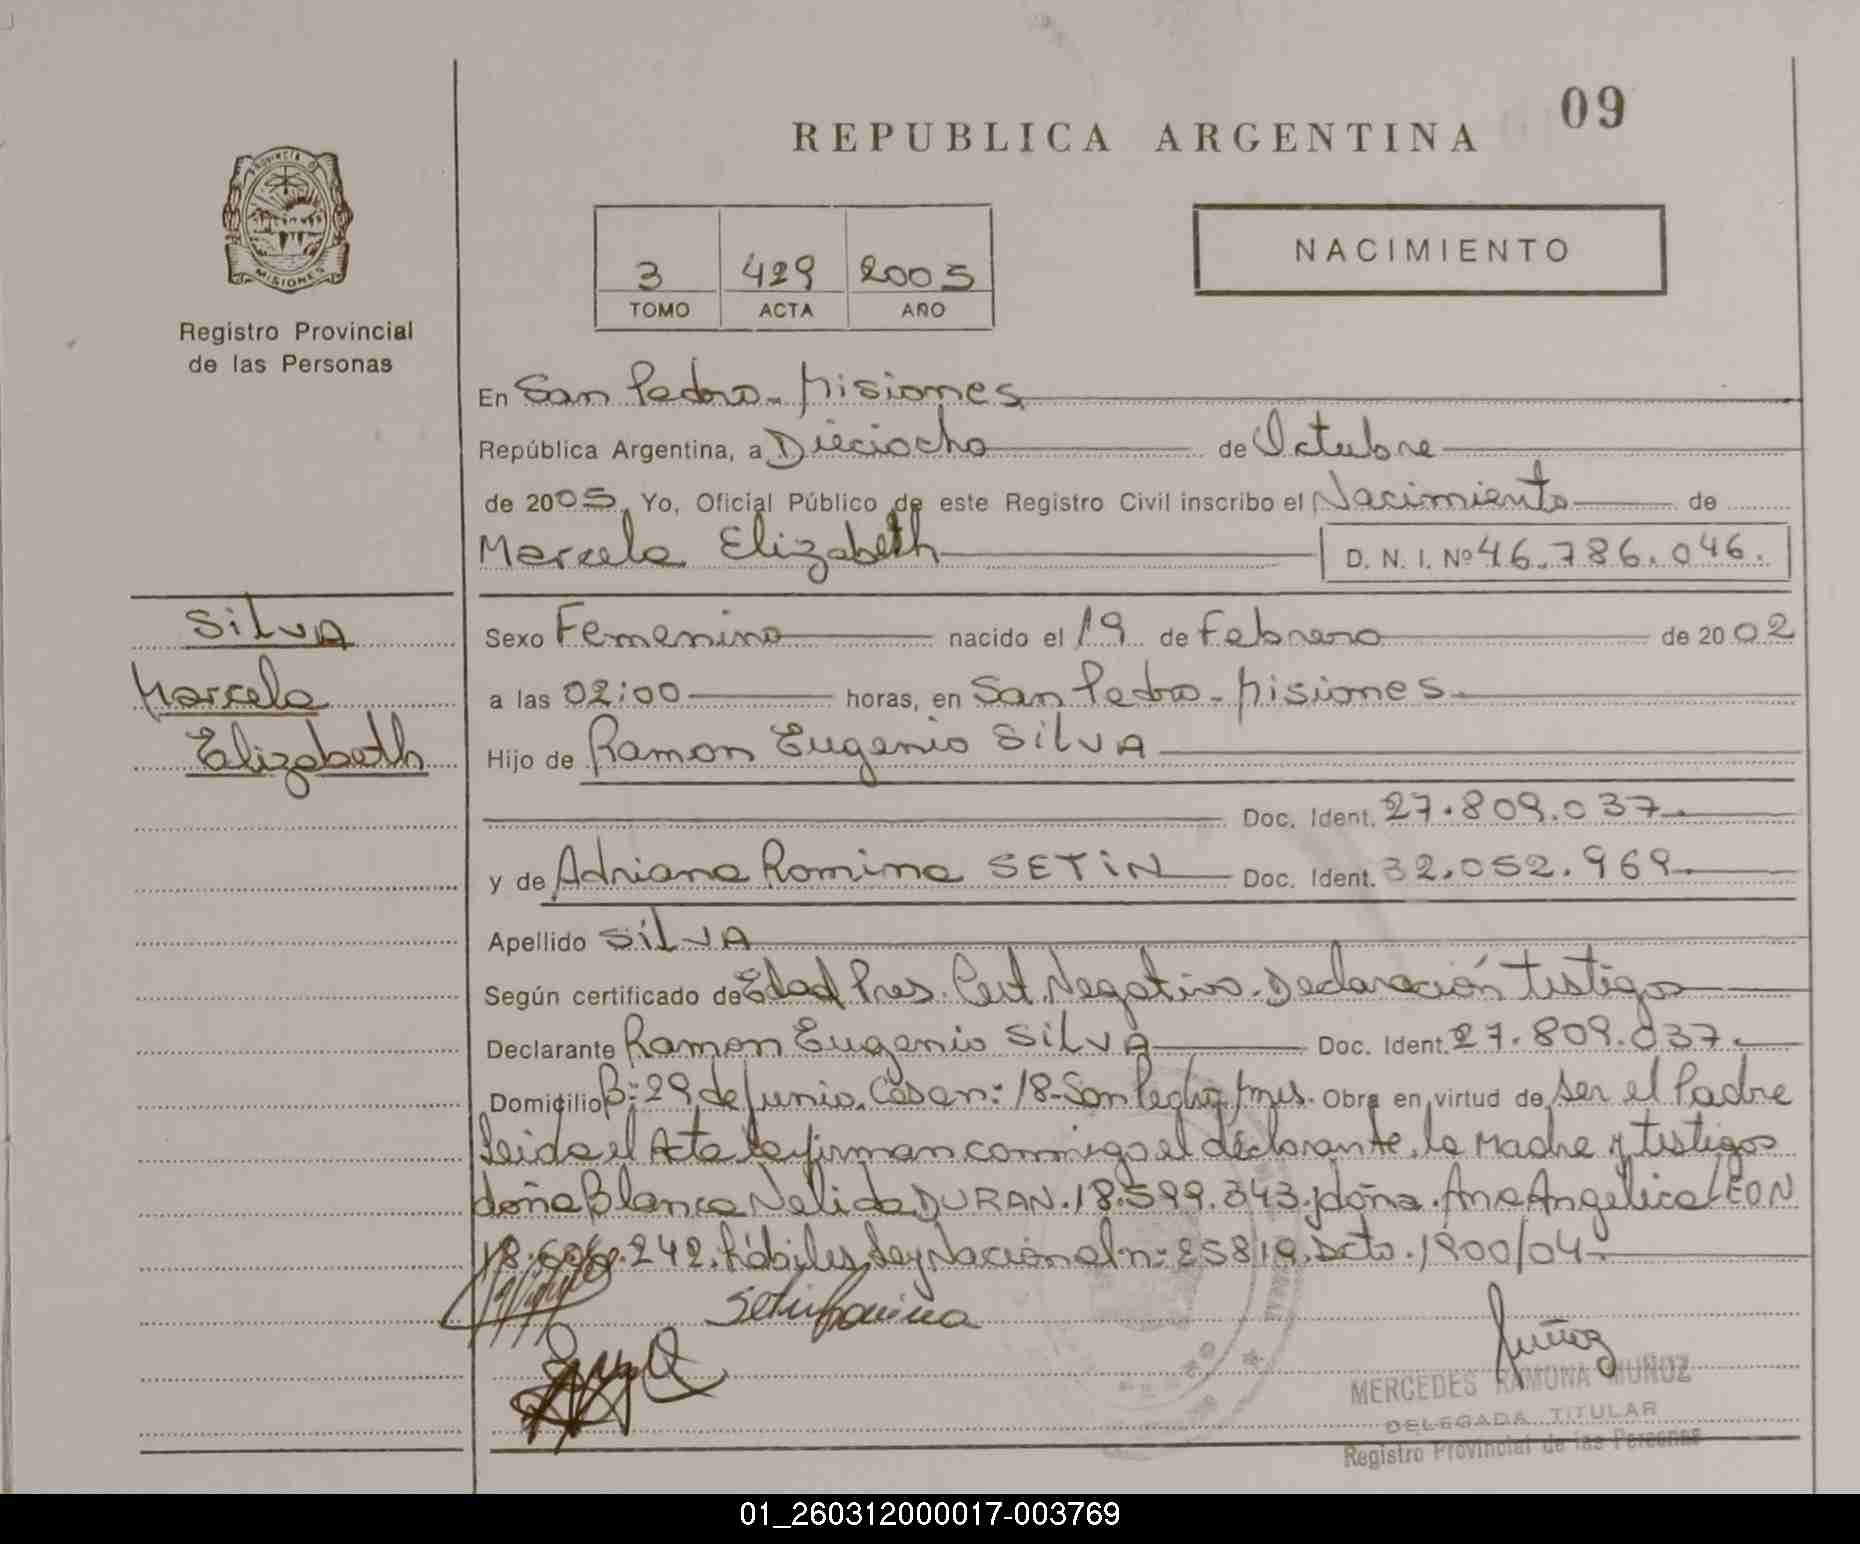 09
REPUBLICA ARGENTINA
PROVINCIA DE
MISIONES
Registro Provincial
de las Personas
NACIMIENTO
3 429 2005
TOMO ACTA AÑO
En San Pedro - Misiones
República Argentina, a Dieciocho de Octubre
de 2005. Yo, Oficial Público de este Registro Civil inscribo el Nacimiento de
Marcela Elizabeth D. N. I. Nº 46.786.046.
SilvA
Marcela
Elizabeth
Sexo Femenino nacido el 19 de Febrero de 2002
a las 02:00 horas, en San Pedro - Misiones
Hijo de Ramon Eugenio SilvA
Doc. Ident. 27.809.037.
y de Adriana Romina SETiN Doc. Ident. 32.052.969
Apellido SilvA
Según certificado de Edad Pres. Cert. Negativo. Declaración testigos
Declarante Ramon Eugenio SilvA Doc. Ident. 27.809.037.
Domicilio B: 29 de Junio. Casa n: 18 - San Pedro, Mis. Obra en virtud de ser el Padre
Leida el Acta la firman conmigo el declarante, la Madre y testigos
doña Blanca Nelida DURAN. 18.599.343. y doña. Ana Angelica LEON
242. hábiles Ley Nacional n: 25819. Dcto. 1900/04
Setin Romina
Muñoz
MERCEDES RAMONA MUÑOZ
DELEGADA TITULAR
Registro Provincial de las Personas
01_260312000017-003769